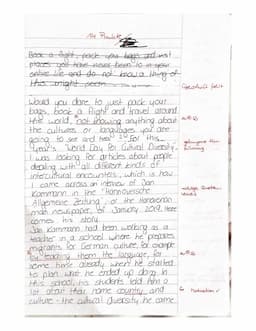 Book a flight, pack your bags and visit
places you have never been to in your
entire life and do not know a thing of
this might seem
Would you dare to just pack your
bags, book a flight and travel around
the world, not knowing anything about
the cultures or languages you are
going to see and hear? For this
year's "World Day for Cultural Diversity",
I was looking for articles about people
dealing with all different kinds of
intercultural encounters, which is how
I came across an interview of Jan
Kammann in the "Hannoversche
Allgemeine Zeitung", of the Hanoverian
main newspaper, 'of January, 2019. Here
comes his story.
Jan Kammann had been working as a
teacher in a school where he prepares
migrants for German culture, for example
by teaching them the language, for
some time already when he started
to plan what he ended up doing. In
this school, his students told him a
lot about their home country and
culture - the cultural diversity he came